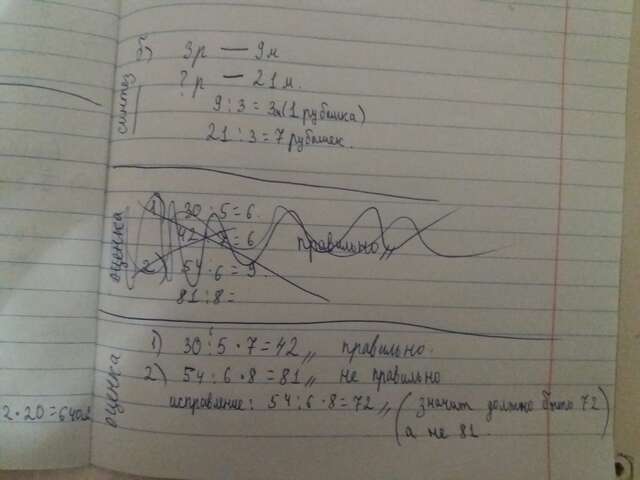 б) 3р — 9м
синтез
?р — 21м.
9 : 3 = 3м (1 рубашка)
21 : 3 = 7 рубашек.
оценка
1) 30 : 5 = 6.
42 : 7 = 6 правильно,,
2) 54 : 6 = 9.
81 : 8 =
оценка
1) 30 : 5 · 7 = 42,, правильно.
2) 54 : 6 · 8 = 81,, не правильно
исправление: 54 : 6 · 8 = 72,, (значит должно быть 72
а не 81.
2 · 20 = 640